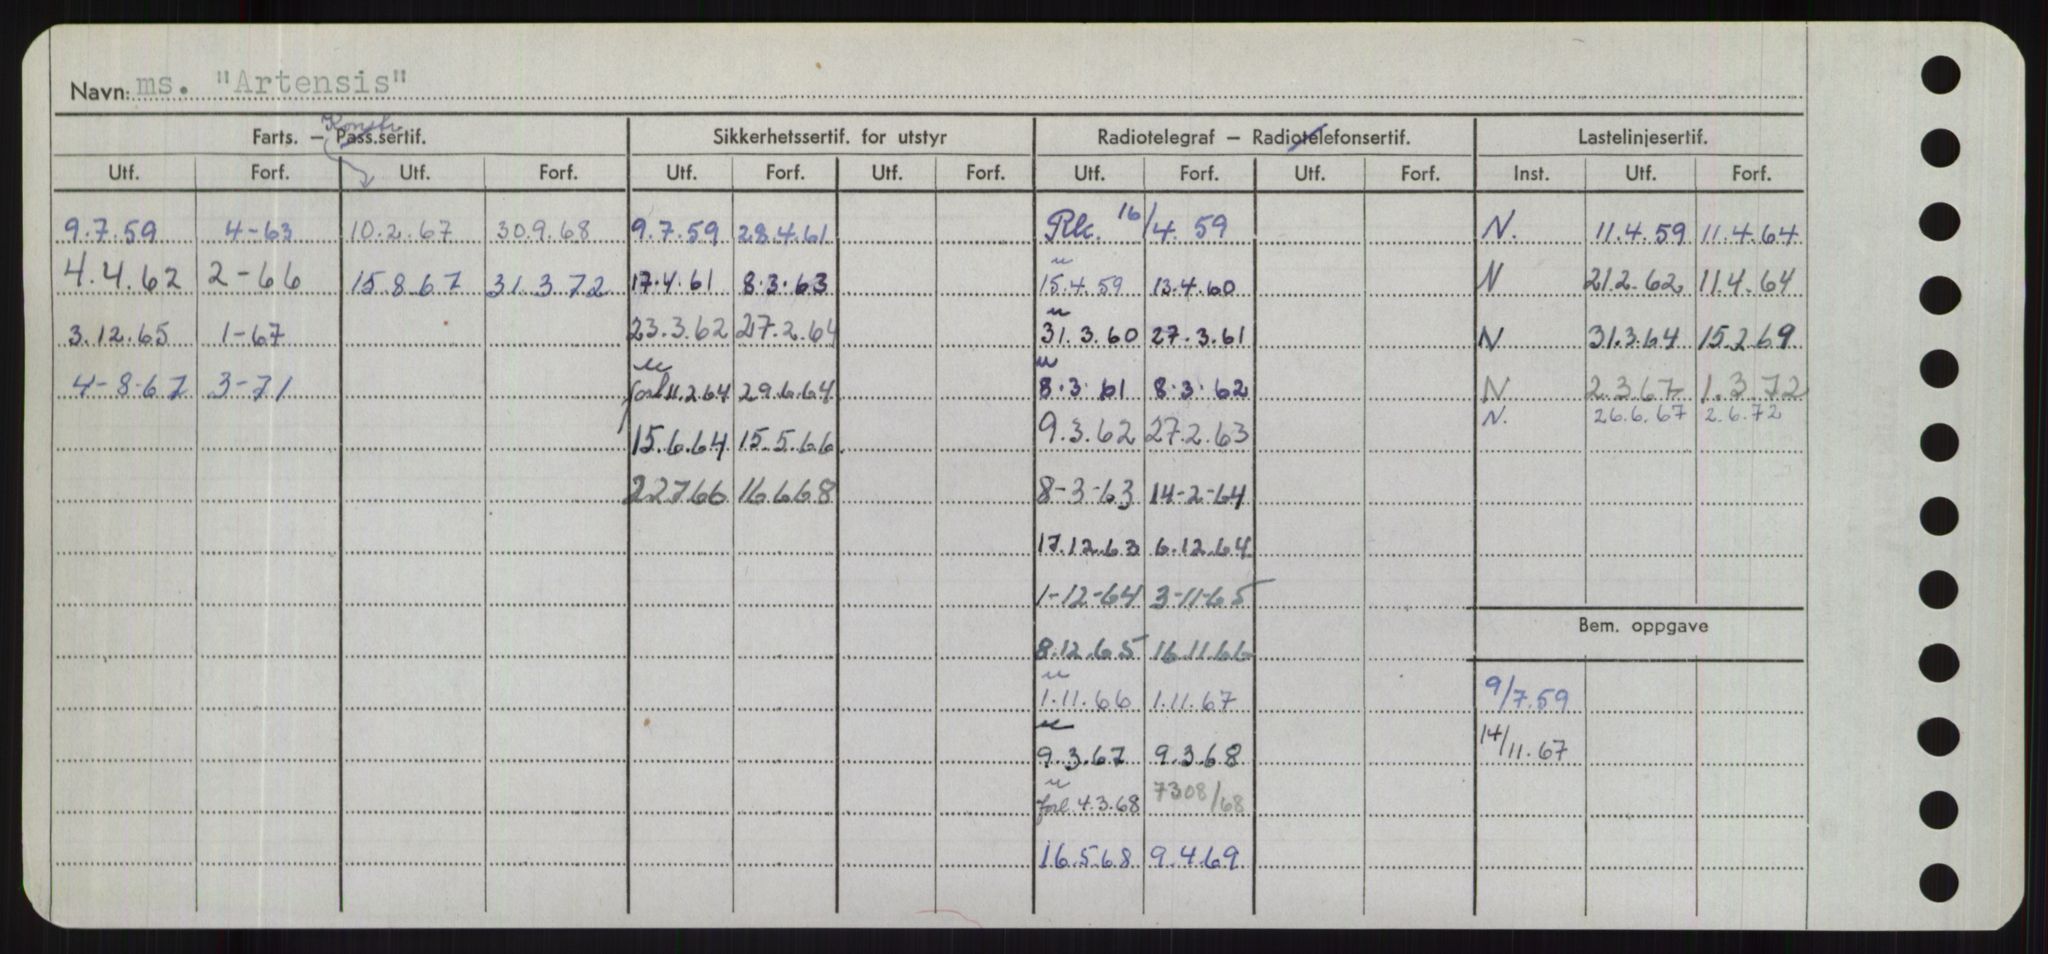 Navn: ms. "Artensis"
Konstr.
Farts. — Pass.sertif. Sikkerhetssertif. for utstyr Radiotelegraf — Radiotelefonsertif. Lastelinjesertif.
Utf. Forf. Utf. Forf. Utf. Forf. Utf. Forf. Utf. Forf. Utf. Forf. Inst. Utf. Forf.
9.7.59 4-63 10.2.67 30.9.68 9.7.59 28.4.61 16/4.59 N. 11.4.59 11.4.64
4.4.62 2-66 15.8.67 31.3.72 17.4.61 8.3.63 15.4.59 13.4.60 N 21.2.62 11.4.64
3.12.65 1-67 23.3.62 27.2.64 31.3.60 27.3.61 N 31.3.64 15.2.69
4-8-67 3-71 forl 11.2.64 29.6.64 8.3.61 8.3.62 N 2.3.67 1.3.72
N. 26.6.67 2.6.72
15.6.64 15.5.66 9.3.62 27.2.63
22766 16668 8-3-63 14-2-64
17.12.63 6.12.64
1-12-64 3-11-65
Bem. oppgave
8.12.65 16.11.66
1.11.66 1.11.67 9/7.59
9.3.67 9.3.68 14/11.67
forl. 4.3.68 7308/68
16.5.68 9.4.69